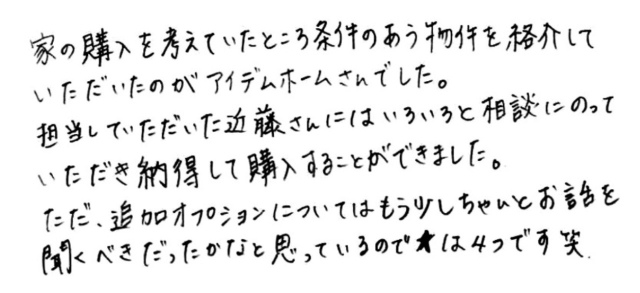 家の購入を考えていたところ条件のあう物件を紹介して
いただいたのがアイデムホームさんでした。
担当していただいた近藤さんにはいろいろと相談にのって
いただき納得して購入することができました。
ただ、追加オプションについてはもう少しちゃんとお話を
聞くべきだったかなと思っているので★は4つです笑